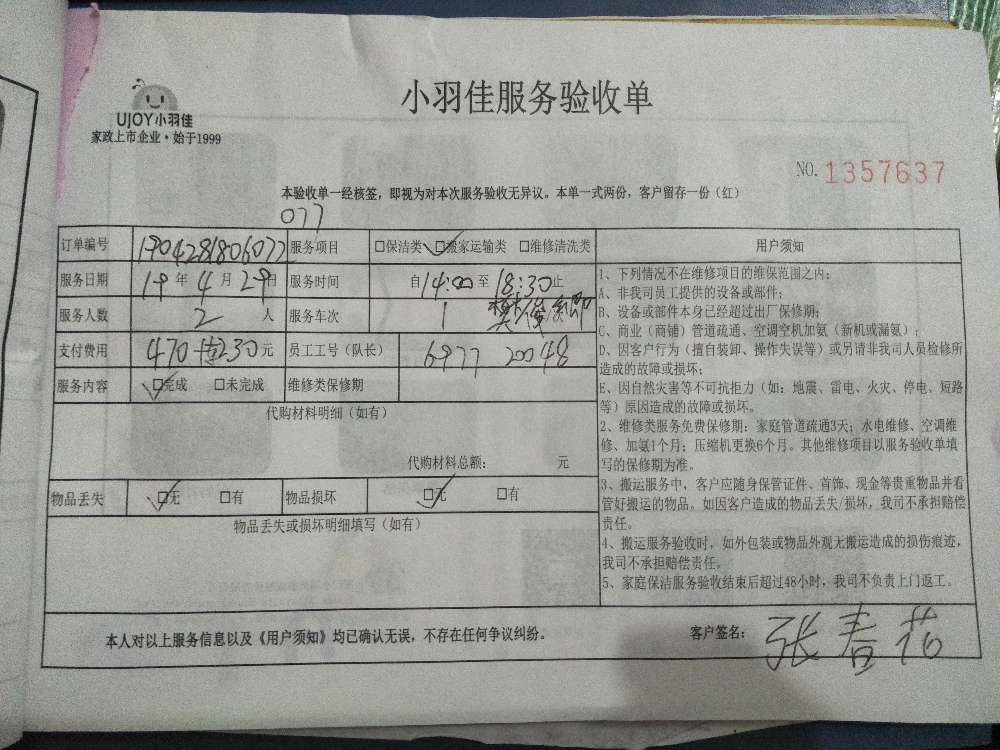 UJOY小羽佳
家政上市企业·始于1999
小羽佳服务验收单
NO. 1357637
本验收单一经核签，即视为对本次服务验收无异议。本单一式两份，客户留存一份（红）
077
订单编号 1904281806077 服务项目 □保洁类 □搬家运输类 □维修清洗类
服务日期 19年4月29日 服务时间 自14:00至18:30止
服务人数 2人 服务车次 1
支付费用 470 230元 员工工号（队长） 6977 20048
服务内容 □完成 □未完成 维修类保修期
代购材料明细（如有）
代购材料总额： 元
物品丢失 □无 □有 物品损坏 □无 □有
物品丢失或损坏明细填写（如有）
用户须知
1、下列情况不在维修项目的维保范围之内：
A、非我司员工提供的设备或部件；
B、设备或部件本身已经超过出厂保修期；
C、商业（商铺）管道疏通、空调空机加氨（新机或漏氨）；
D、因客户行为（擅自装卸、操作失误等）或另请非我司人员检修所
造成的故障或损坏；
E、因自然灾害等不可抗拒力（如：地震、雷电、火灾、停电、短路
等）原因造成的故障或损坏。
2、维修类服务免费保修期：家庭管道疏通3天；水电维修、空调维
修、加氨1个月；压缩机更换6个月。其他维修项目以服务验收单填
写的保修期为准。
3、搬运服务中，客户应随身保管证件、首饰、现金等贵重物品并看
管好搬运的物品。如因客户造成的物品丢失/损坏，我司不承担赔偿
责任。
4、搬运服务验收时，如外包装或物品外观无搬运造成的损伤痕迹，
我司不承担赔偿责任。
5、家庭保洁服务验收结束后超过48小时，我司不负责上门返工。
本人对以上服务信息以及《用户须知》均已确认无误，不存在任何争议纠纷。
客户签名： 张春花